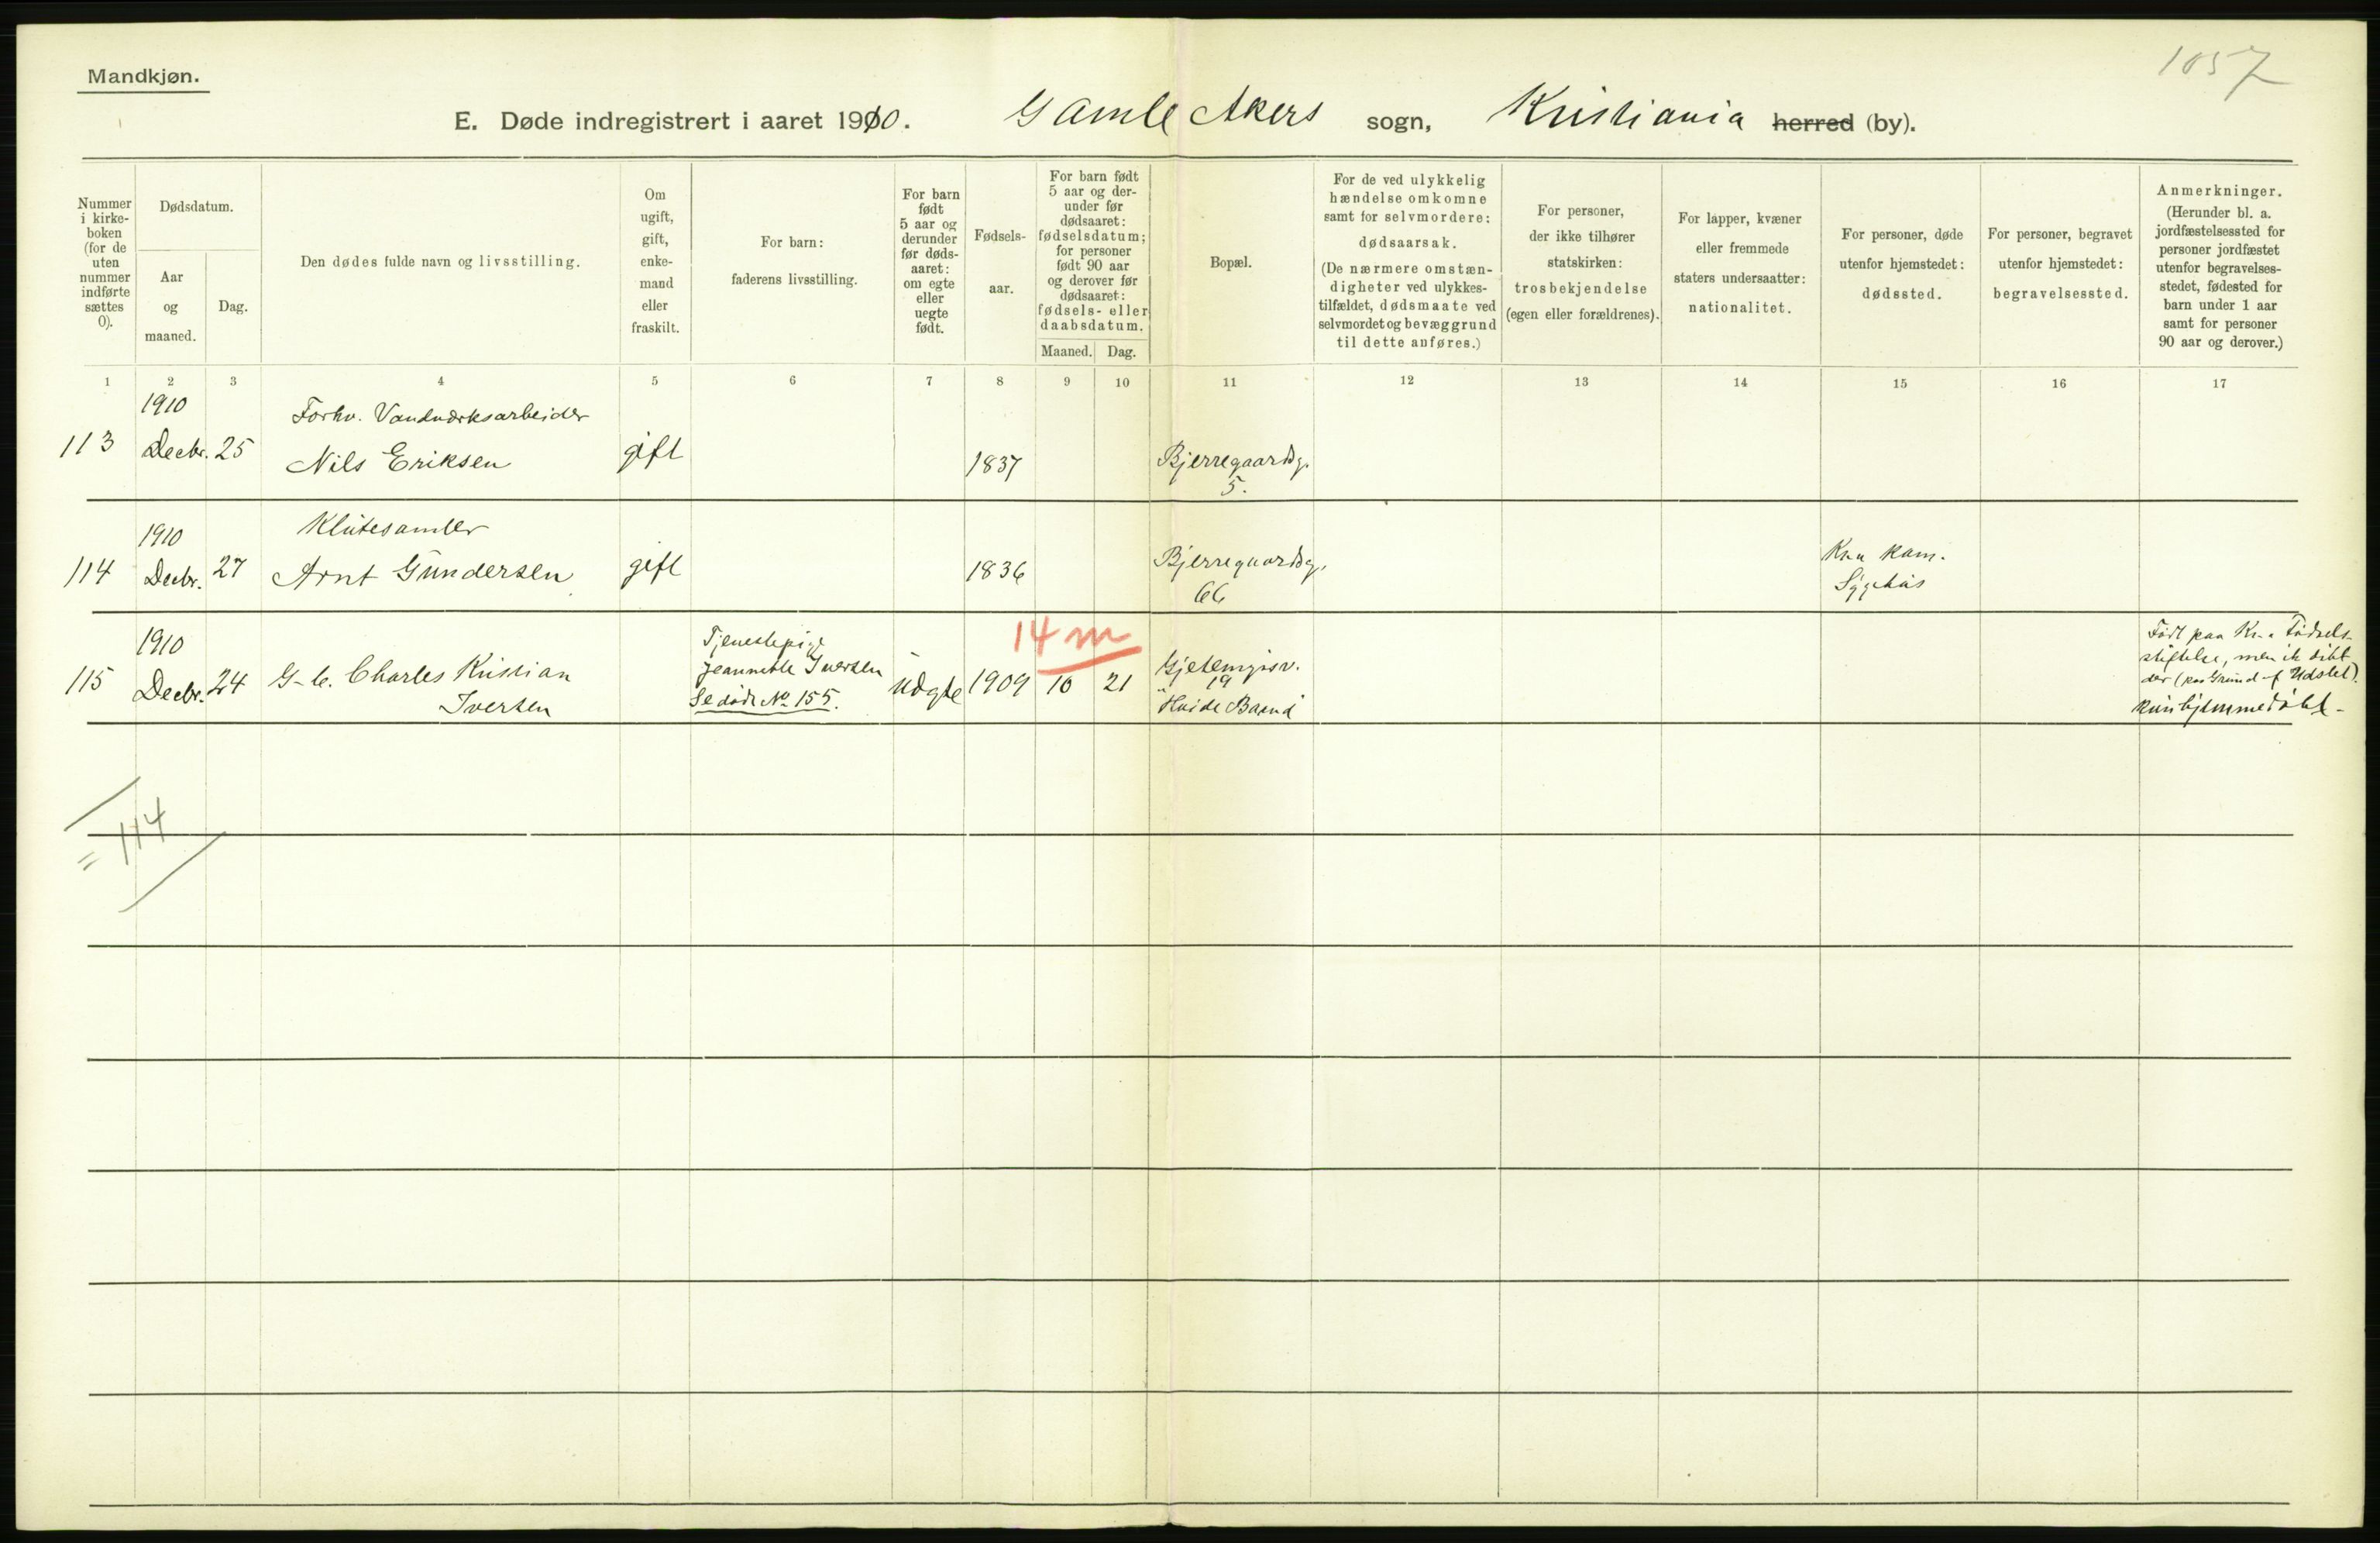 1057
Mandkjøn.
E. Døde indregistrert i aaret 1910. Gamle Akers sogn, Kristiania herred (by).
Nummer
i kirke-
boken
(for de
uten
nummer
indførte
sættes
0).
Dødsdatum.
Aar
og
maaned.
Dag.
Den dødes fulde navn og livsstilling.
Om
ugift,
gift,
enke-
mand
eller
fraskilt.
For barn:
faderens livsstilling.
For barn
født
5 aar og
derunder
før døds-
aaret:
om egte
eller
uegte
født.
Fødsels-
aar.
For barn født
5 aar og der-
under før
dødsaaret:
fødselsdatum;
for personer
født 90 aar
og derover før
dødsaaret:
fødsels- eller
daabsdatum.
Maaned. Dag.
Bopæl.
For de ved ulykkelig
hændelse omkomne
samt for selvmordere:
dødsaarsak.
(De nærmere omstæn-
digheter ved ulykkes-
tilfældet, dødsmaate ved
selvmordet og bevæggrund
til dette anføres.)
For personer,
der ikke tilhører
statskirken:
trosbekjendelse
(egen eller forældrenes).
For lapper, kvæner
eller fremmede
staters undersaatter:
nationalitet.
For personer, døde
utenfor hjemstedet:
dødssted.
For personer, begravet
utenfor hjemstedet:
begravelsessted.
Anmerkninger.
(Herunder bl. a.
jordfæstelsessted for
personer jordfæstet
utenfor begravelses-
stedet, fødested for
barn under 1 aar
samt for personer
90 aar og derover.)
1 2 3 4 5 6 7 8 9 10 11 12 13 14 15 16 17
1910
Forhv. Vandværksarbeider
113 Decbr. 25 Nils Eriksen gift 1837 Bjerregaardsg.
5.
1910
Klutesamler
114 Decbr. 27 Arnt Gundersen gift 1836 Bjerregaardsg.
66
Kr.a kom.
Sygehus
1910
Tjenestepige
14 m
115 Decbr. 24 G-b. Charles Kristian
Iversen
Jeannette Iversen
Se døde No 155.
Udgte 1909 10 21
Gjetemyrsv.
19
"Hvide Baand
Født paa Kr.a Fødsels-
stiftelse, men ik døbt
der (paa Grund af Udslet).
kun hjemmedøbt -
= 114